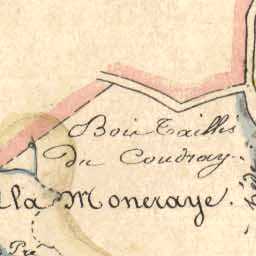 Bois Tailles
du Coudray
la Moneraye.
Pré